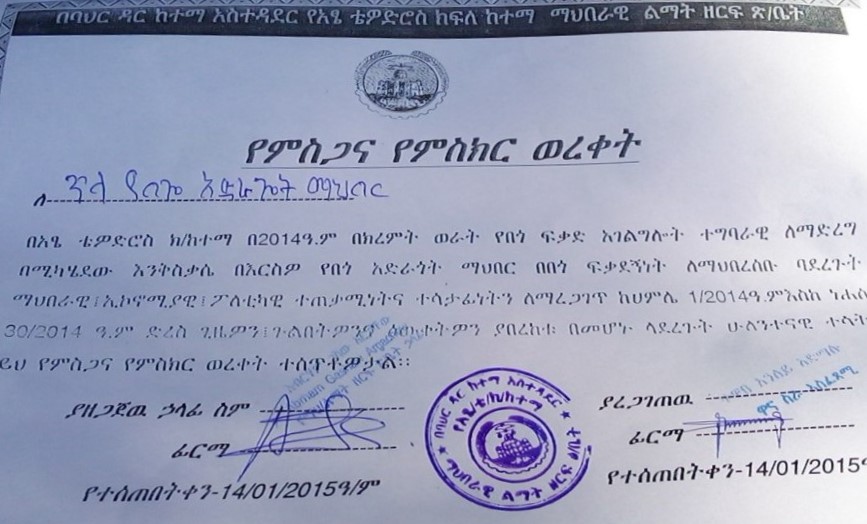 በባህር ዳር ከተማ አስተዳደር የአፄ ቴዎድሮስ ክፍለ ከተማ ማህበራዊ ልማት ዘርፍ ጽ/ቤት
የምስጋና የምስክር ወረቀት
ለ ጥላ የበጎ አድራጎት ማህበር
በአፄ ቴዎድሮስ ክ/ከተማ በ2014ዓ.ም በክረምት ወራት የበጎ ፍቃድ አገልግሎት ተግባራዊ ለማድረግ
በሚካሄደው እንትስቃሴ በእርስዎ የበጎ አድራጎት ማህበር በበጎ ፍቃደኝነት ለማህበረሰቡ ባደረጉት
ማህበራዊ፤ኢኮኖሚያዊ፤ፖለቲካዊ ተጠቃሚነትና ተሳታፊነትን ለማረጋገጥ ከሀምሌ 1/2014ዓ.ምእስከ ነሐሴ
30/2014 ዓ.ም ድረስ ጊዜዎን፤ጉልበትዎንና ያበረከቱ በመሆኑ ላደረጉት ሁለንተናዊ
ይህ የምስጋና የምስክር ወረቀት ተሰጥቶዎታል።
ያዘጋጀዉ ኃላፊ ስም
ፊርማ
የተሰጠበትቀን-14/01/2015ዓ/ም
በባህር ዳር ከተማ አስተዳደር
የአፄ/ቴ/ክ/ከተማ
ማህበራዊ ልማት ዘርፍ ጽ/ቤት
ያረጋገጠዉ
ፊርማ
የተሰጠበትቀን-14/01/2015